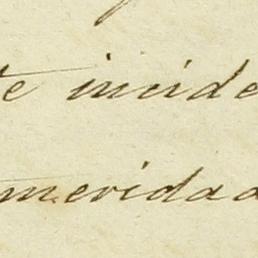 te incide
meridad